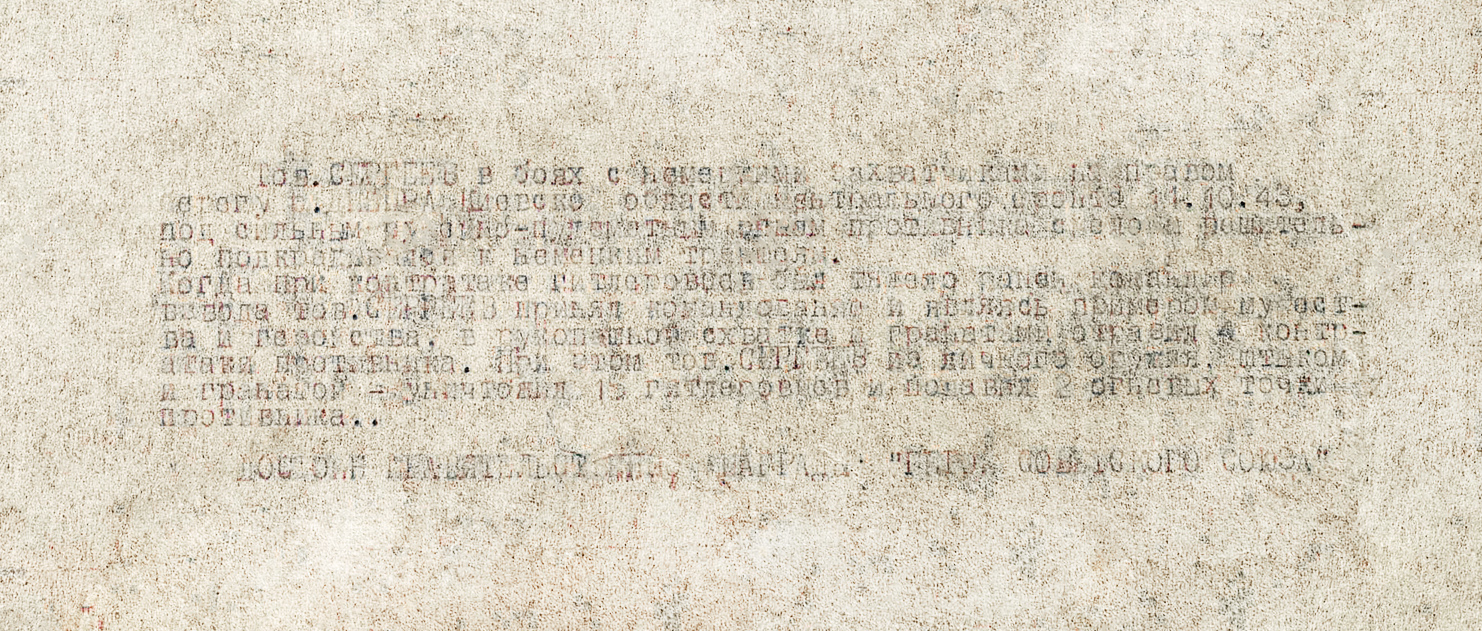 Тов.СЕРГЕЕВ в боях с немецкими захватчиками на правом
берегу области Центрального фронта 14.10.43,
под сильным огнем противника снова решитель-
но к немецким траншеям.
Когда при контратаке гитлеровцев был тяжело ранен командир
взвода тов.СЕРГЕЕВ принял командование и являясь примером мужест-
ва и геройства, в рукопашной схватке и гранатами отразил 4 контр-
атаки противника. При этом тов.СЕРГЕЕВ из личного оружия, штыком
и гранатой - уничтожил гитлеровцев и подавил 2 огневых точки
противника..
ДОСТОИН ПРАВИТЕЛЬСТВЕННОЙ НАГРАДЫ "ГЕРОЯ СОВЕТСКОГО СОЮЗА"